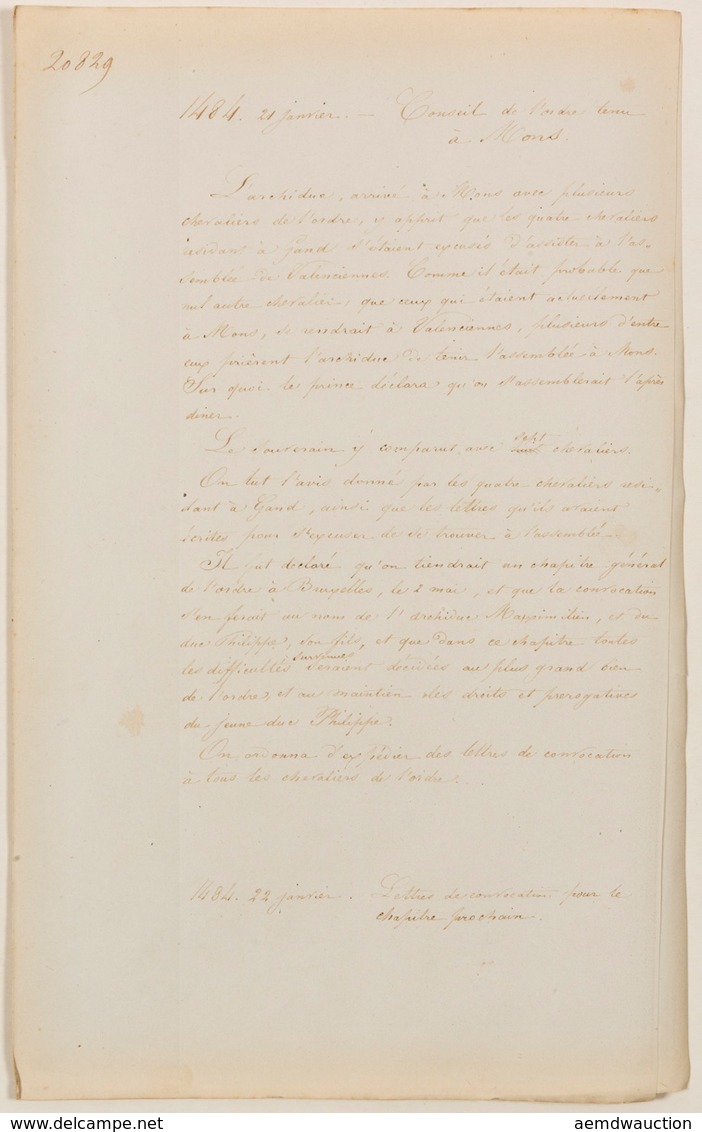 20829
1484. 21 janvier. — Conseil de l'ordre tenu
à Mons.
L'archiduc, arrivé à Mons avec plusieurs
chevaliers de l'ordre, y apprit que les quatre chevaliers
residant à Gand s'étaient excusés d'assister à l'as-
semblée de Valenciennes. Comme il était probable que
nul autre chevalier, que ceux qui étaient actuellement
à Mons, se rendrait à Valenciennes, plusieurs d'entre
eux prièrent l'archiduc de tenir l'assemblée à Mons.
Sur quoi le prince déclara qu'on s'assemblerait l'après
diner.
Le souverain y comparut avec sept chevaliers.
On lut l'avis donné par les quatre chevaliers resi-
dant à Gand, ainsi que les lettres qu'ils avaient
écrites pour s'excuser de se trouver à l'assemblée.
Il fut declaré qu'on tiendrait un chapitre général
de l'ordre à Bruxelles, le 2 mai, et que la convocation
s'en ferait au nom de l'archiduc Maximilien, et du
duc Philippe, son fils, et que dans ce chapitre toutes
les difficultés survenues seraient décidées au plus grand bien
de l'ordre, et au maintien des droits et prerogatives
du jeune duc Philippe.
On ordonna d'expédier des lettres de convocation
à tous les chevaliers de l'ordre.
1484. 22 janvier. Lettres de convocation pour le
chapitre prochain.
delcampe.net
aemdwauction